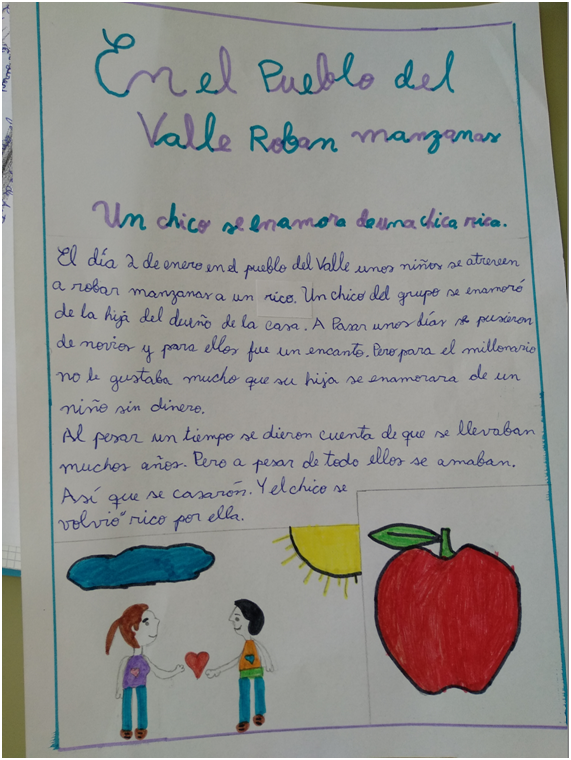 En el Pueblo del
Valle Roban manzanas
Un chico se enamora de una chica rica.
El día 2 de enero en el pueblo del Valle unos niños se atrevieen
a robar manzanas a un rico. Un chico del grupo se enamoró
de la hija del dueño de la casa. A Pasar unos días se pusieron
de novios y para ellos fue un encanto. Pero para el millonario
no le gustaba mucho que su hija se enamorara de un
niño sin dinero.
Al pesar un tiempo se dieron cuenta de que se llevaban
muchos años. Pero a pesar de todo ellos se amaban.
Así que se casarón. Y el chico se
volvió" rico por ella.